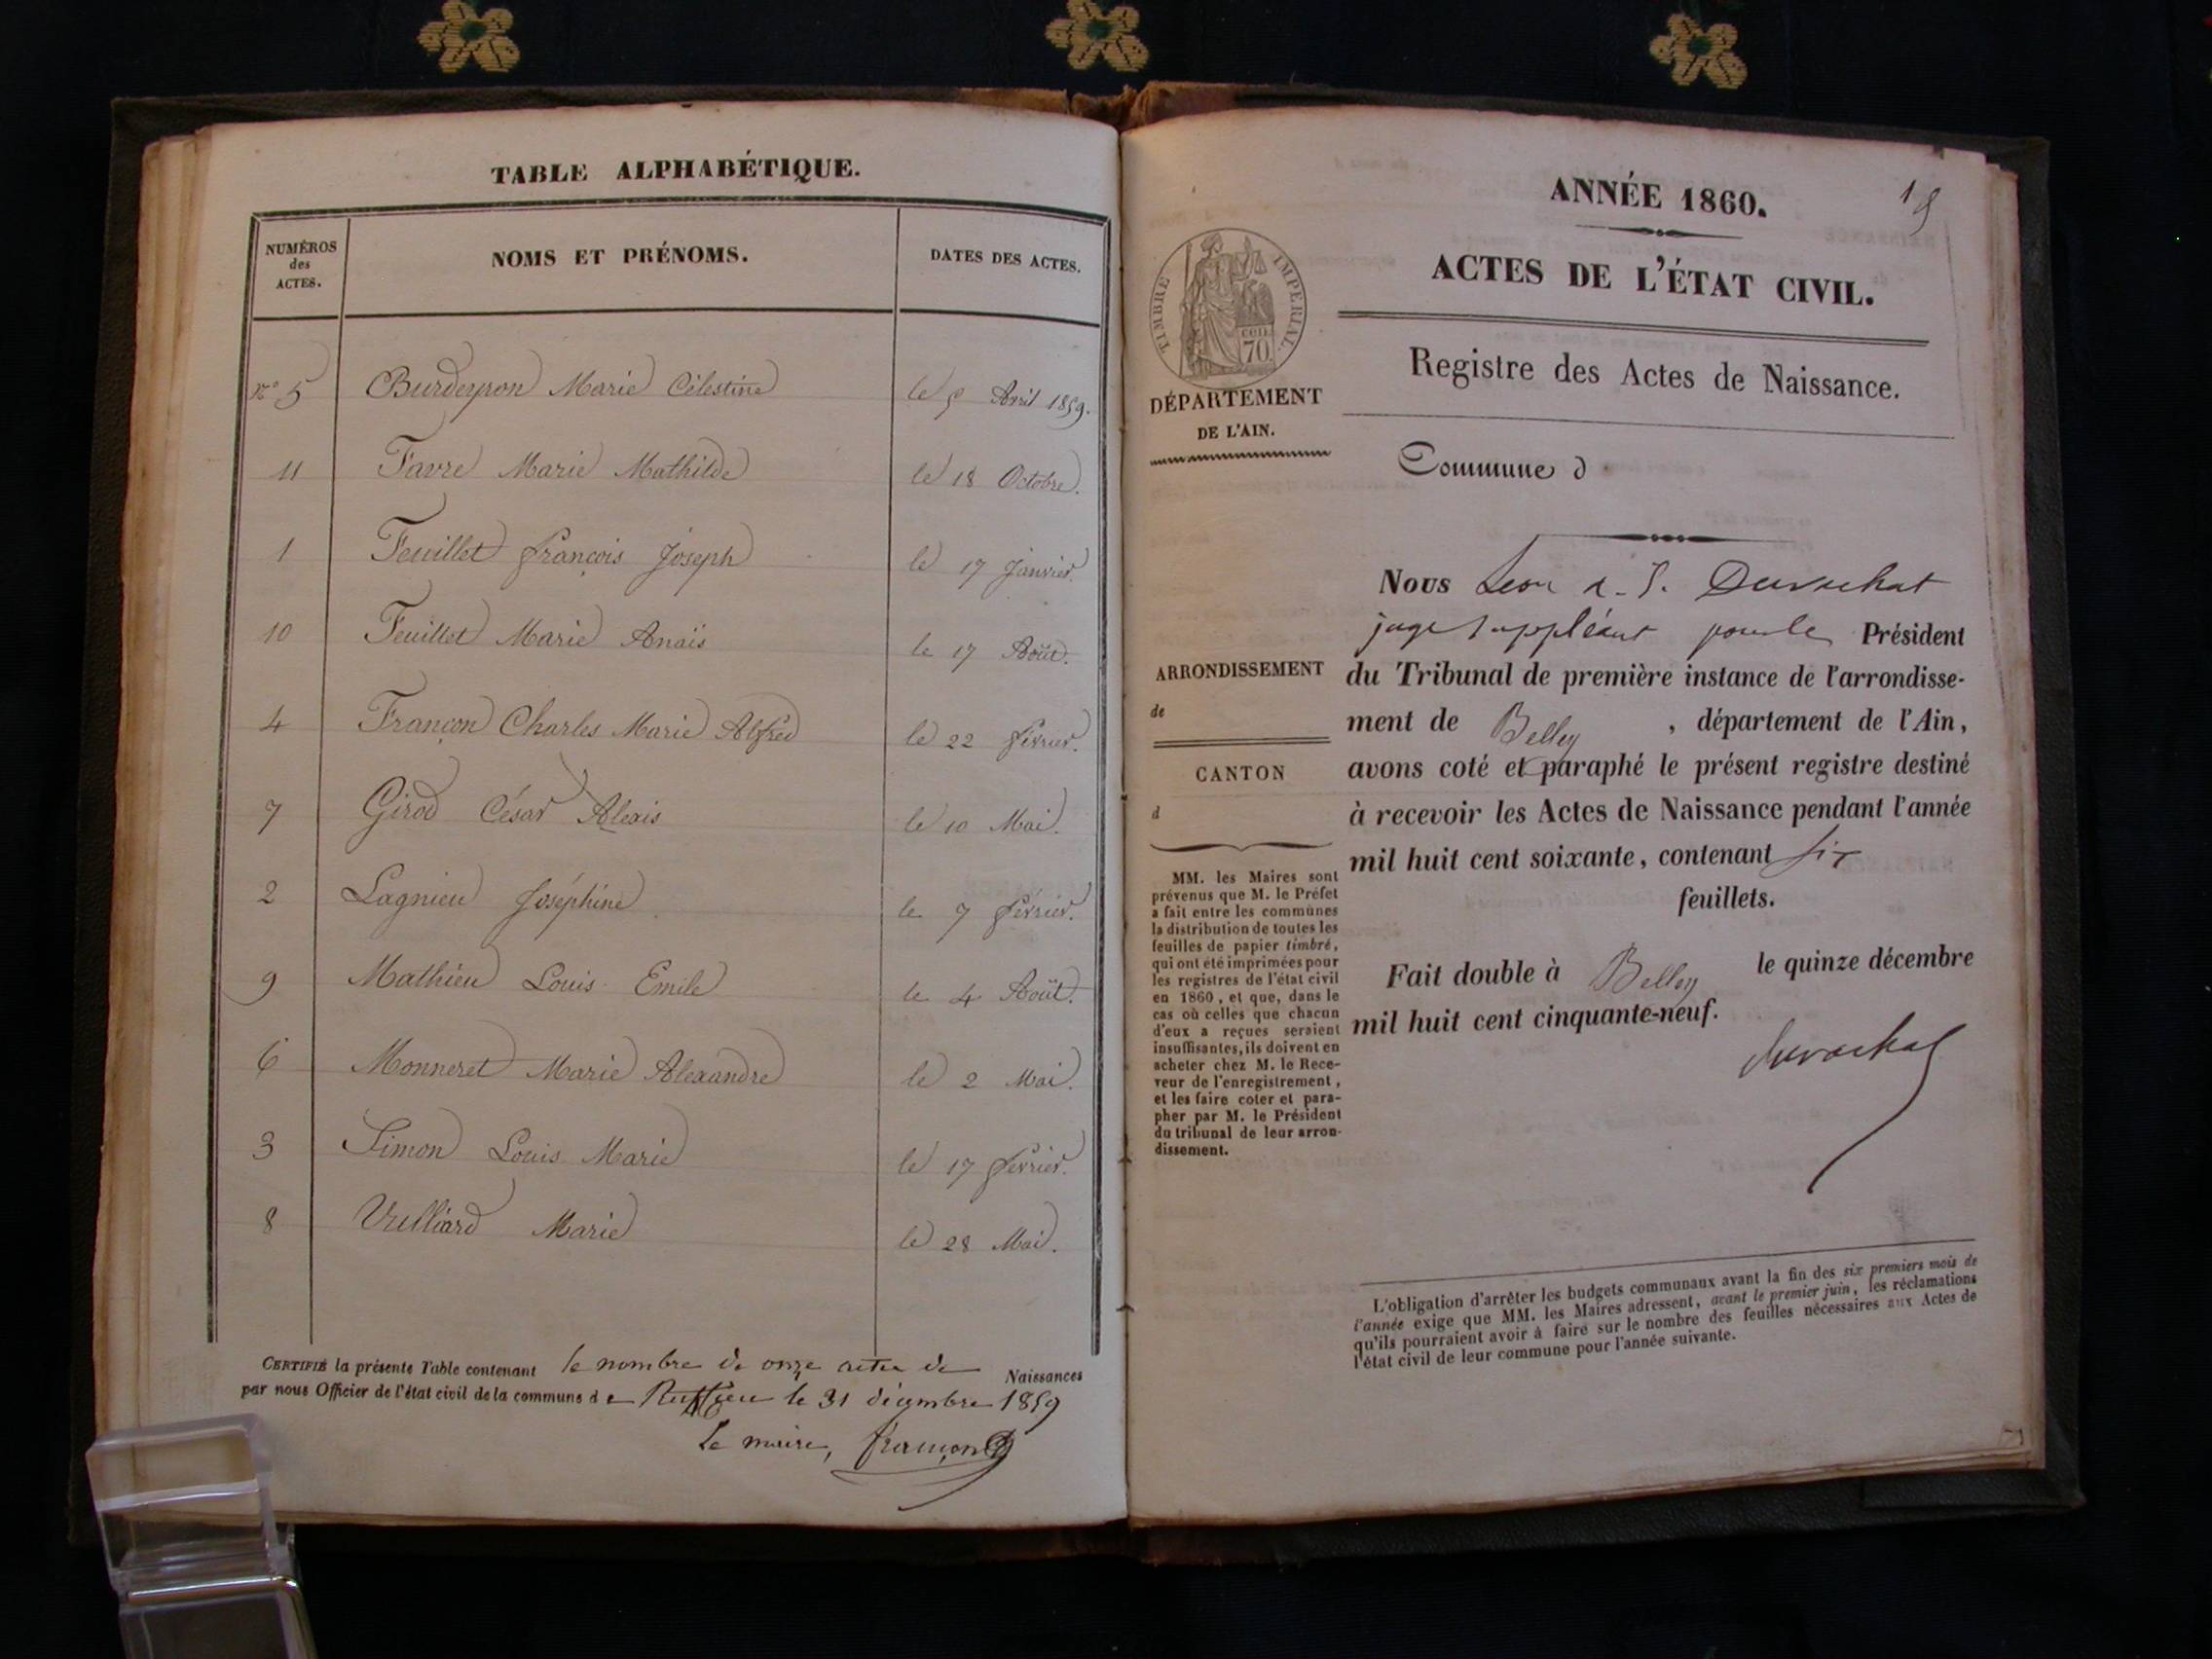 TABLE ALPHABÉTIQUE.
NUMÉROS des ACTES. NOMS ET PRÉNOMS. DATES DES ACTES.
n° 5 Burdeyron Marie Célestine le 5 Avril 1859.
11 Favre Marie Mathilde le 18 Octobre.
1 Feuillet françois Joseph le 17 Janvier.
10 Feuillet Marie Anaïs le 17 Août.
4 Françon Charles Marie Alfred le 22 février.
7 Girod César Alexis le 10 Mai.
2 Lagnieu Joséphine le 7 février.
9 Mathieu Louis Emile le 4 Août.
6 Monneret Marie Alexandre le 2 Mai.
3 Simon Louis Marie le 17 février.
8 Vulliard Marie le 28 Mai.
CERTIFIÉ la présente Table contenant le nombre de onze actes de Naissances
par nous Officier de l'état civil de la commune de Ruffieu le 31 décembre 1859
Le maire, françon
ANNÉE 1860.
ACTES DE L'ÉTAT CIVIL.
TIMBRE IMPERIAL.
cen.
70
DÉPARTEMENT
DE L'AIN.
Registre des Actes de Naissance.
Commune d
Nous Leon Duvachat
juge suppléant pour le Président
du Tribunal de première instance de l'arrondisse-
ment de Belley, département de l'Ain,
avons coté et paraphé le présent registre destiné
à recevoir les Actes de Naissance pendant l'année
mil huit cent soixante, contenant six
feuillets.
Fait double à Belley le quinze décembre
mil huit cent cinquante-neuf.
Duvachat
ARRONDISSEMENT
de
CANTON
d
MM. les Maires sont
prévenus que M. le Préfet
a fait entre les communes
la distribution de toutes les
feuilles de papier timbré,
qui ont été imprimées pour
les registres de l'état civil
en 1860, et que, dans le
cas où celles que chacun
d'eux a reçues seraient
insuffisantes, ils doivent en
acheter chez M. le Rece-
veur de l'enregistrement,
et les faire coter et para-
pher par M. le Président
du tribunal de leur arron-
dissement.
L'obligation d'arrêter les budgets communaux avant la fin des six premiers mois de
l'année exige que MM. les Maires adressent, avant le premier juin, les réclamations
qu'ils pourraient avoir à faire sur le nombre des feuilles nécessaires aux Actes de
l'état civil de leur commune pour l'année suivante.